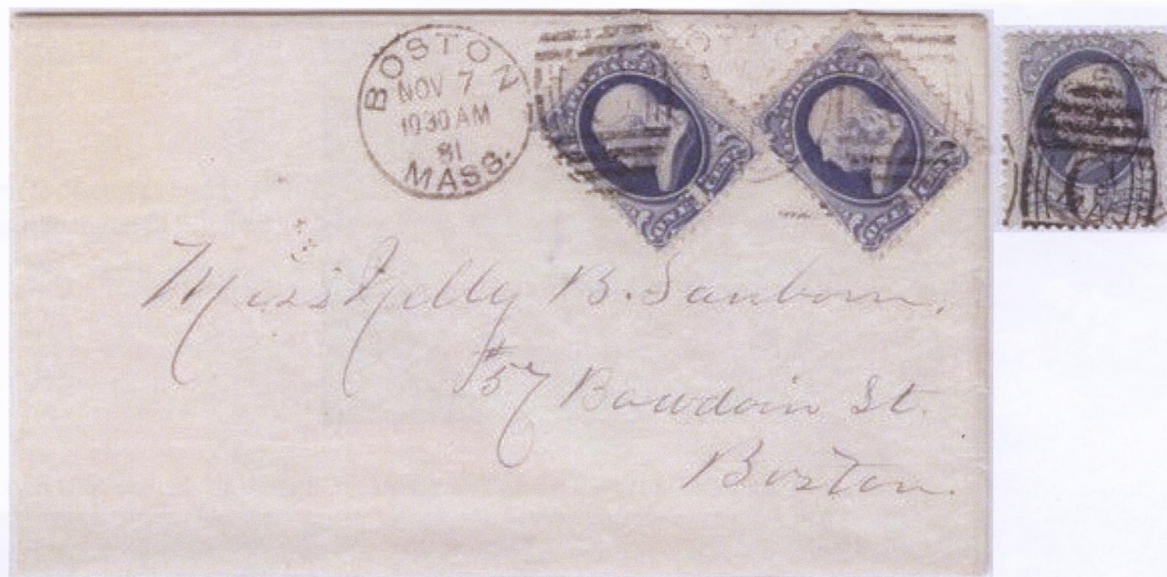 BOSTON
NOV 7
1030 AM
81
MASS.
Miss Nelly B. Sanborn,
#57 Bowdoin St.
Boston.
ONE
ONE